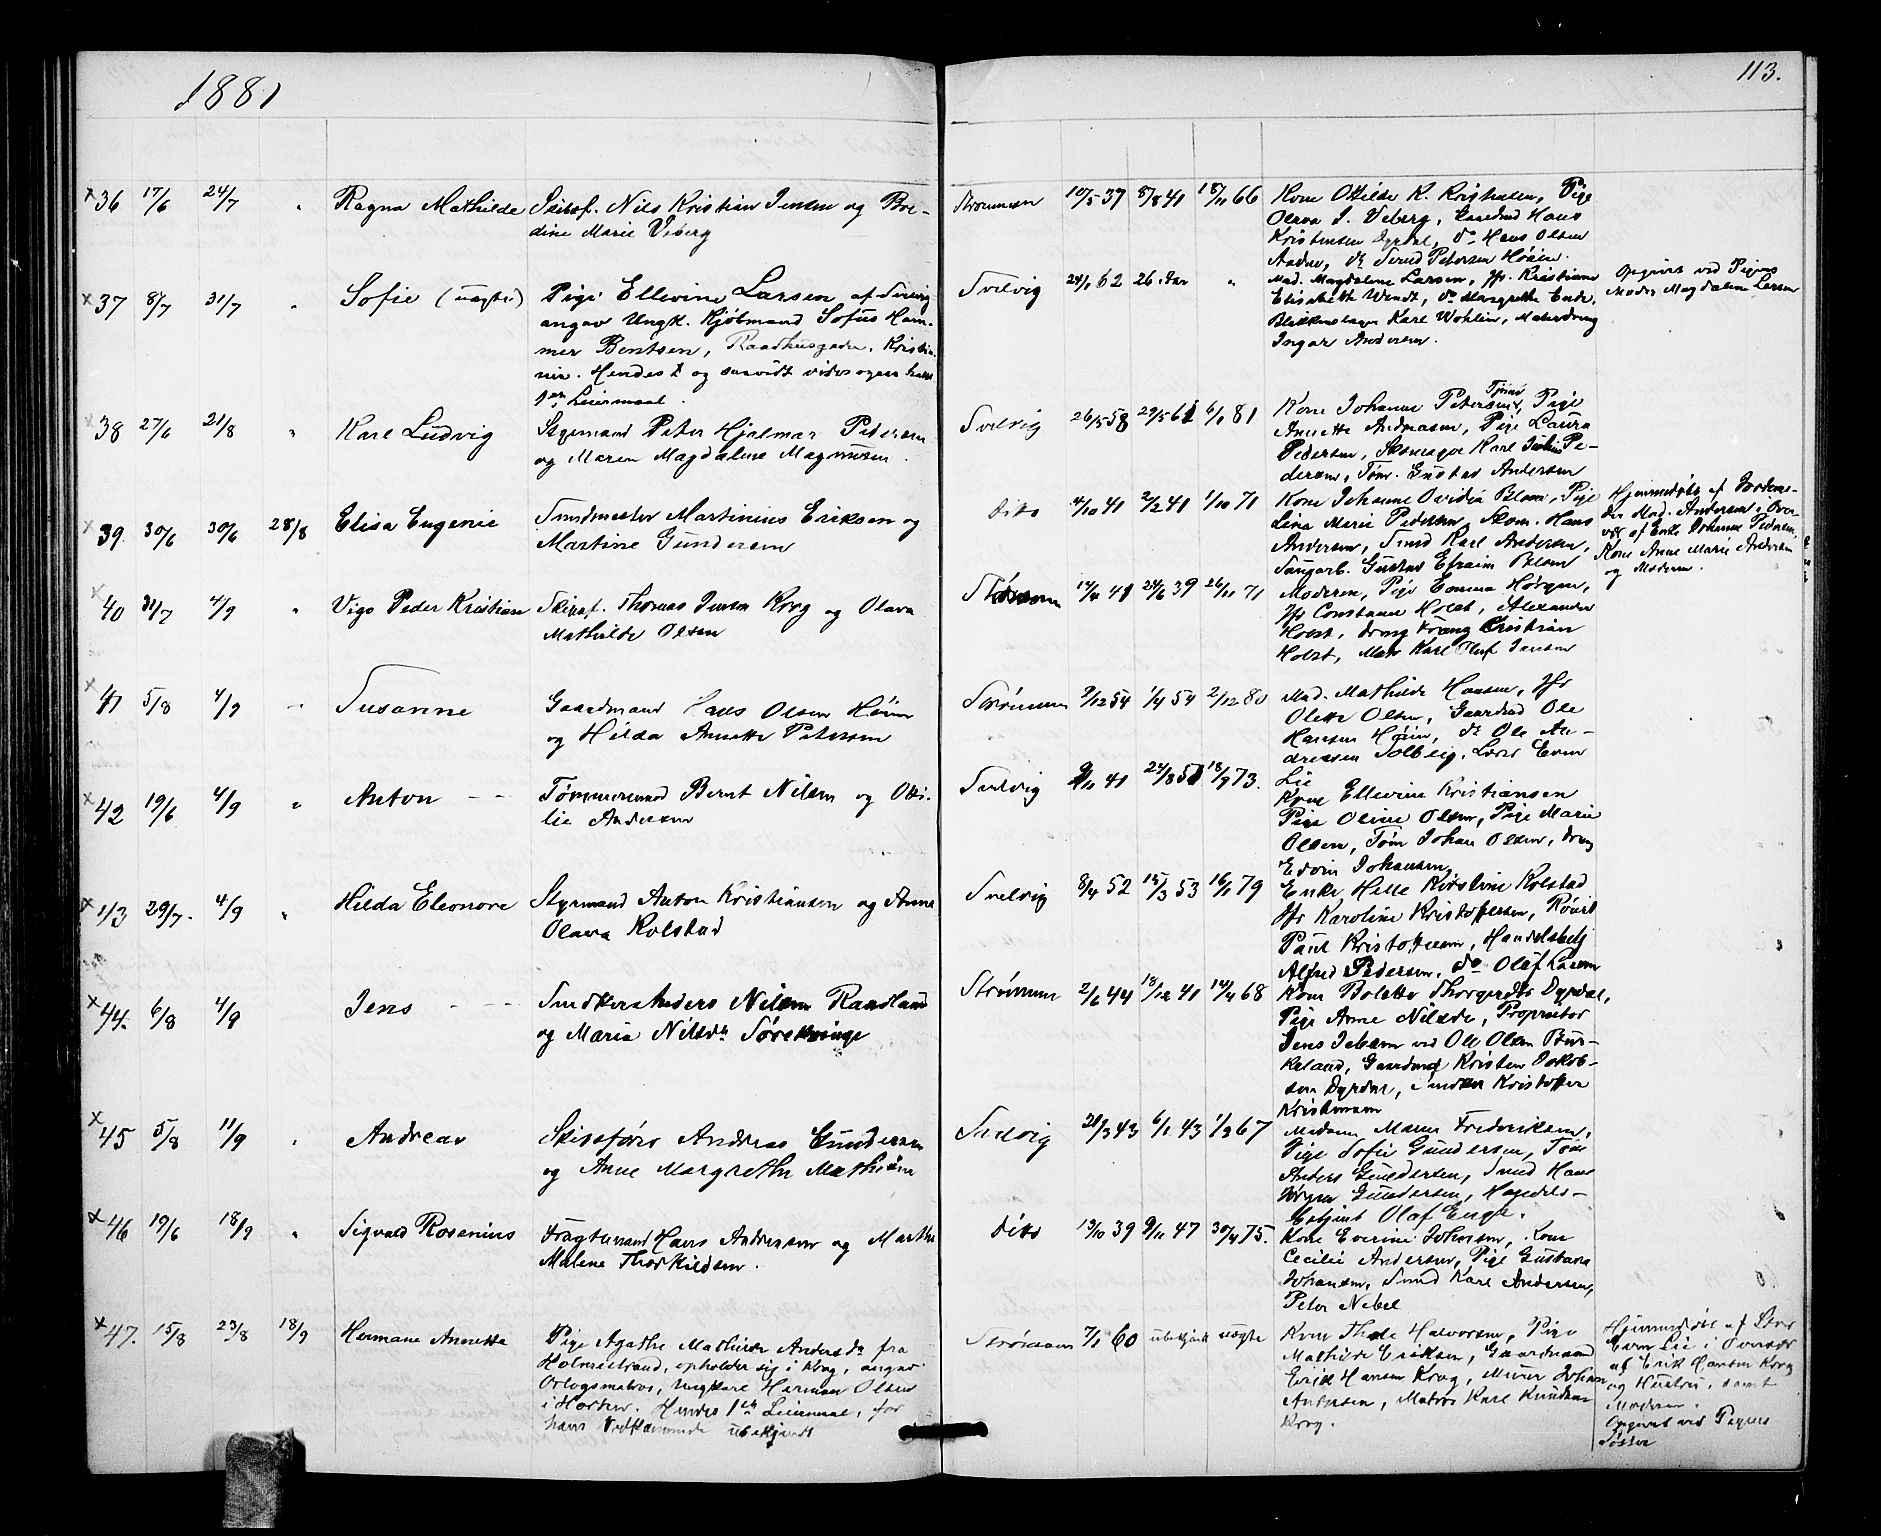 1881
113.
36 17/6 24/7 " Ragna Mathilde Skibsf. Nils Kristian Jensen og Bor-
dine Marie Veberg
Strømmen 10/5 37 8/8 41 18/11 66 Kone Otilde K. Kristiansen, Pige
Olava J. Veberg, Gaardmd Hans
Kristensen Dyrdal, do Hans Olsen
do Svend Petersen Høien.
37 8/7 31/7 " Sofie (uægte) Pige Ellevine Larsen af Svelvig
angav Ungk. Kjøbmand Sofus Ham-
mer Bentsen, Raadhusgaden, Kristia-
nia. Hendes 2 og saavidt vides ogsaa hans
1ste Leiermaal.
Svelvig 24/1 62 26 Aar " Mad. Magdalene Larsen, Jfr. Kristiane
Elisabeth Wendt, do Margrethe Ende,
Blikkenslager Karl Wohlin, Malerdreng
Ingar Andersen.
Opgivet ved Pigens
Moder Magdalene Larsen
38 27/6 21/8 " Karl Ludvig Styrmand Peter Hjalmar Pedersen
og Maren Magdalene Magnusen.
Svelvig 26/5 58 29/5 61 6/1 81 Kone Johanne Petersen, Pige
Annette Andreasen, Pige Laura
Pedersen, Skomager Karl Julius Pe-
dersen, Tøm. Gustav Andersen
39. 30/6 30/6 28/8 Elisa Eugenie Sundmester Martinius Eriksen og
Martine Gundersen
dito 4/10 41 2/2 41 1/10 71 Kone Johanne Ovidia Blom, Pige
Lina Marie Pedersen, Skom. Hans
Andersen, Smed Karl Andersen,
Saugarb. Gustav Efraim Blom
Hjemmedøbt af Jordemo-
der Mad. Andersen i Over-
vær af Enke Johanne Pedersen,
Kone Anne Marie Andersen
og Moderen.
40 31/7 4/9 " Vigo Peder Kristian Skibsf. Thomas Jensen Krog og Olava
Mathilde Olsen
Strømm 14/4 41 24/6 39 26/11 71 Moderen, Pige Emma Hørgen,
Jfr Constance Holst, Alexander
Holst, dreng Frang Christian
Holst, Matr Karl Oluf Jensen
41 5/8 4/9 Susanne Gaardmand Hans Olsen Høien
og Hilda Annette Petersen
Strømmen 9/12 54 1/4 54 2/12 80 Mad. Mathilde Hansen, Jfr
Olette Olsen, Gaardmd Ole
Hansen Høien, do Ole An-
dreasen Solberg, Lærer Even
Lie
42 19/6 4/9 " Anton Tømmermand Bernt Nilsen og Oti-
lie Andersen
Svelvig 9/11 41 24/8 51 18/9 73. Kone Ellevine Kristiansen
Pige Oline Olsen, Pige Marie
Olsen, Tøm Johan Olsen, dreng
Edvin Johansen
43 29/7. 4/9 " Hilda Eleonore Styrmand Anton Kristiansen og Anne
Olava Rolstad
Svelvig 8/4 52 15/3 53 16/1 79 Enke Helle Kirstine Rolstad
Jfr Karoline Kristoffersen,
Paul Kristoffersen, Handelsbetj
Alfred Pedersen, do Oluf Larsen
44. 6/8 4/9 Jens Snedker Anders Nilsen Raadland
og Maria Nilsdtr
Strømmen 2/6 44 18/12 41 14/4 68 Kone Bolette Thorgersdtr Dyrdal,
Pige Anne Nilsdtr, Proprietær
Jens Jebsen ved Ole Olsen Bur-
keland, Gaardmd Kristen Jakob-
sen Dyrdal, Snedker Kristoffer
Kristensen
45 5/8 11/9 Andreas Skibsfører Andreas Gundersen
og Anne Margrethe Mathisen
Svelvig 21/3 43 6/1 43 1/3 67 Madam Maren Frederiksen,
Pige Sofie Gundersen, Tøm
Anders Gundersen, Smed Hans
Jørgen Gundersen, Handels-
betjent Olaf Enge.
46 19/6 18/9 " Sigvald Rosenius Fragtemand Hans Andreasen og Marthe
Malene Thorkildsen.
dito 13/10 39 9/11 47 30/4 75. Kone Everine Johnsen, Kone
Cecilie Andersen, Pige Gustava
Johansen, Smed Karl Andersen,
Peter Nebel
47. 15/8 23/8 18/9 Hermane Annette Pige Agathe Mathilde Andersdtr fra
Holmestrand, opholder sig i Krog, angav
Orlogsmatros, Ungkarl Herman Olsen
i Horten. Hendes 1ste Leiermaal, for
hans Vedkommende ubekjendt
Strømmen 7/1 60 ubekjendt uægte Kone Thale Halvorsen, Pige
Mathilde Eriksen, Gaardmand
Erik Hansen Krog, Murer Johan
Antonsen, Matros Karl Knudsen
Krog.
Hjemmedøbt af Lærer
Even Lie i Overvær
af Erik Hansen Krog
og Hustru, samt
Moderen.
Opgivet ved Pigens
Søster